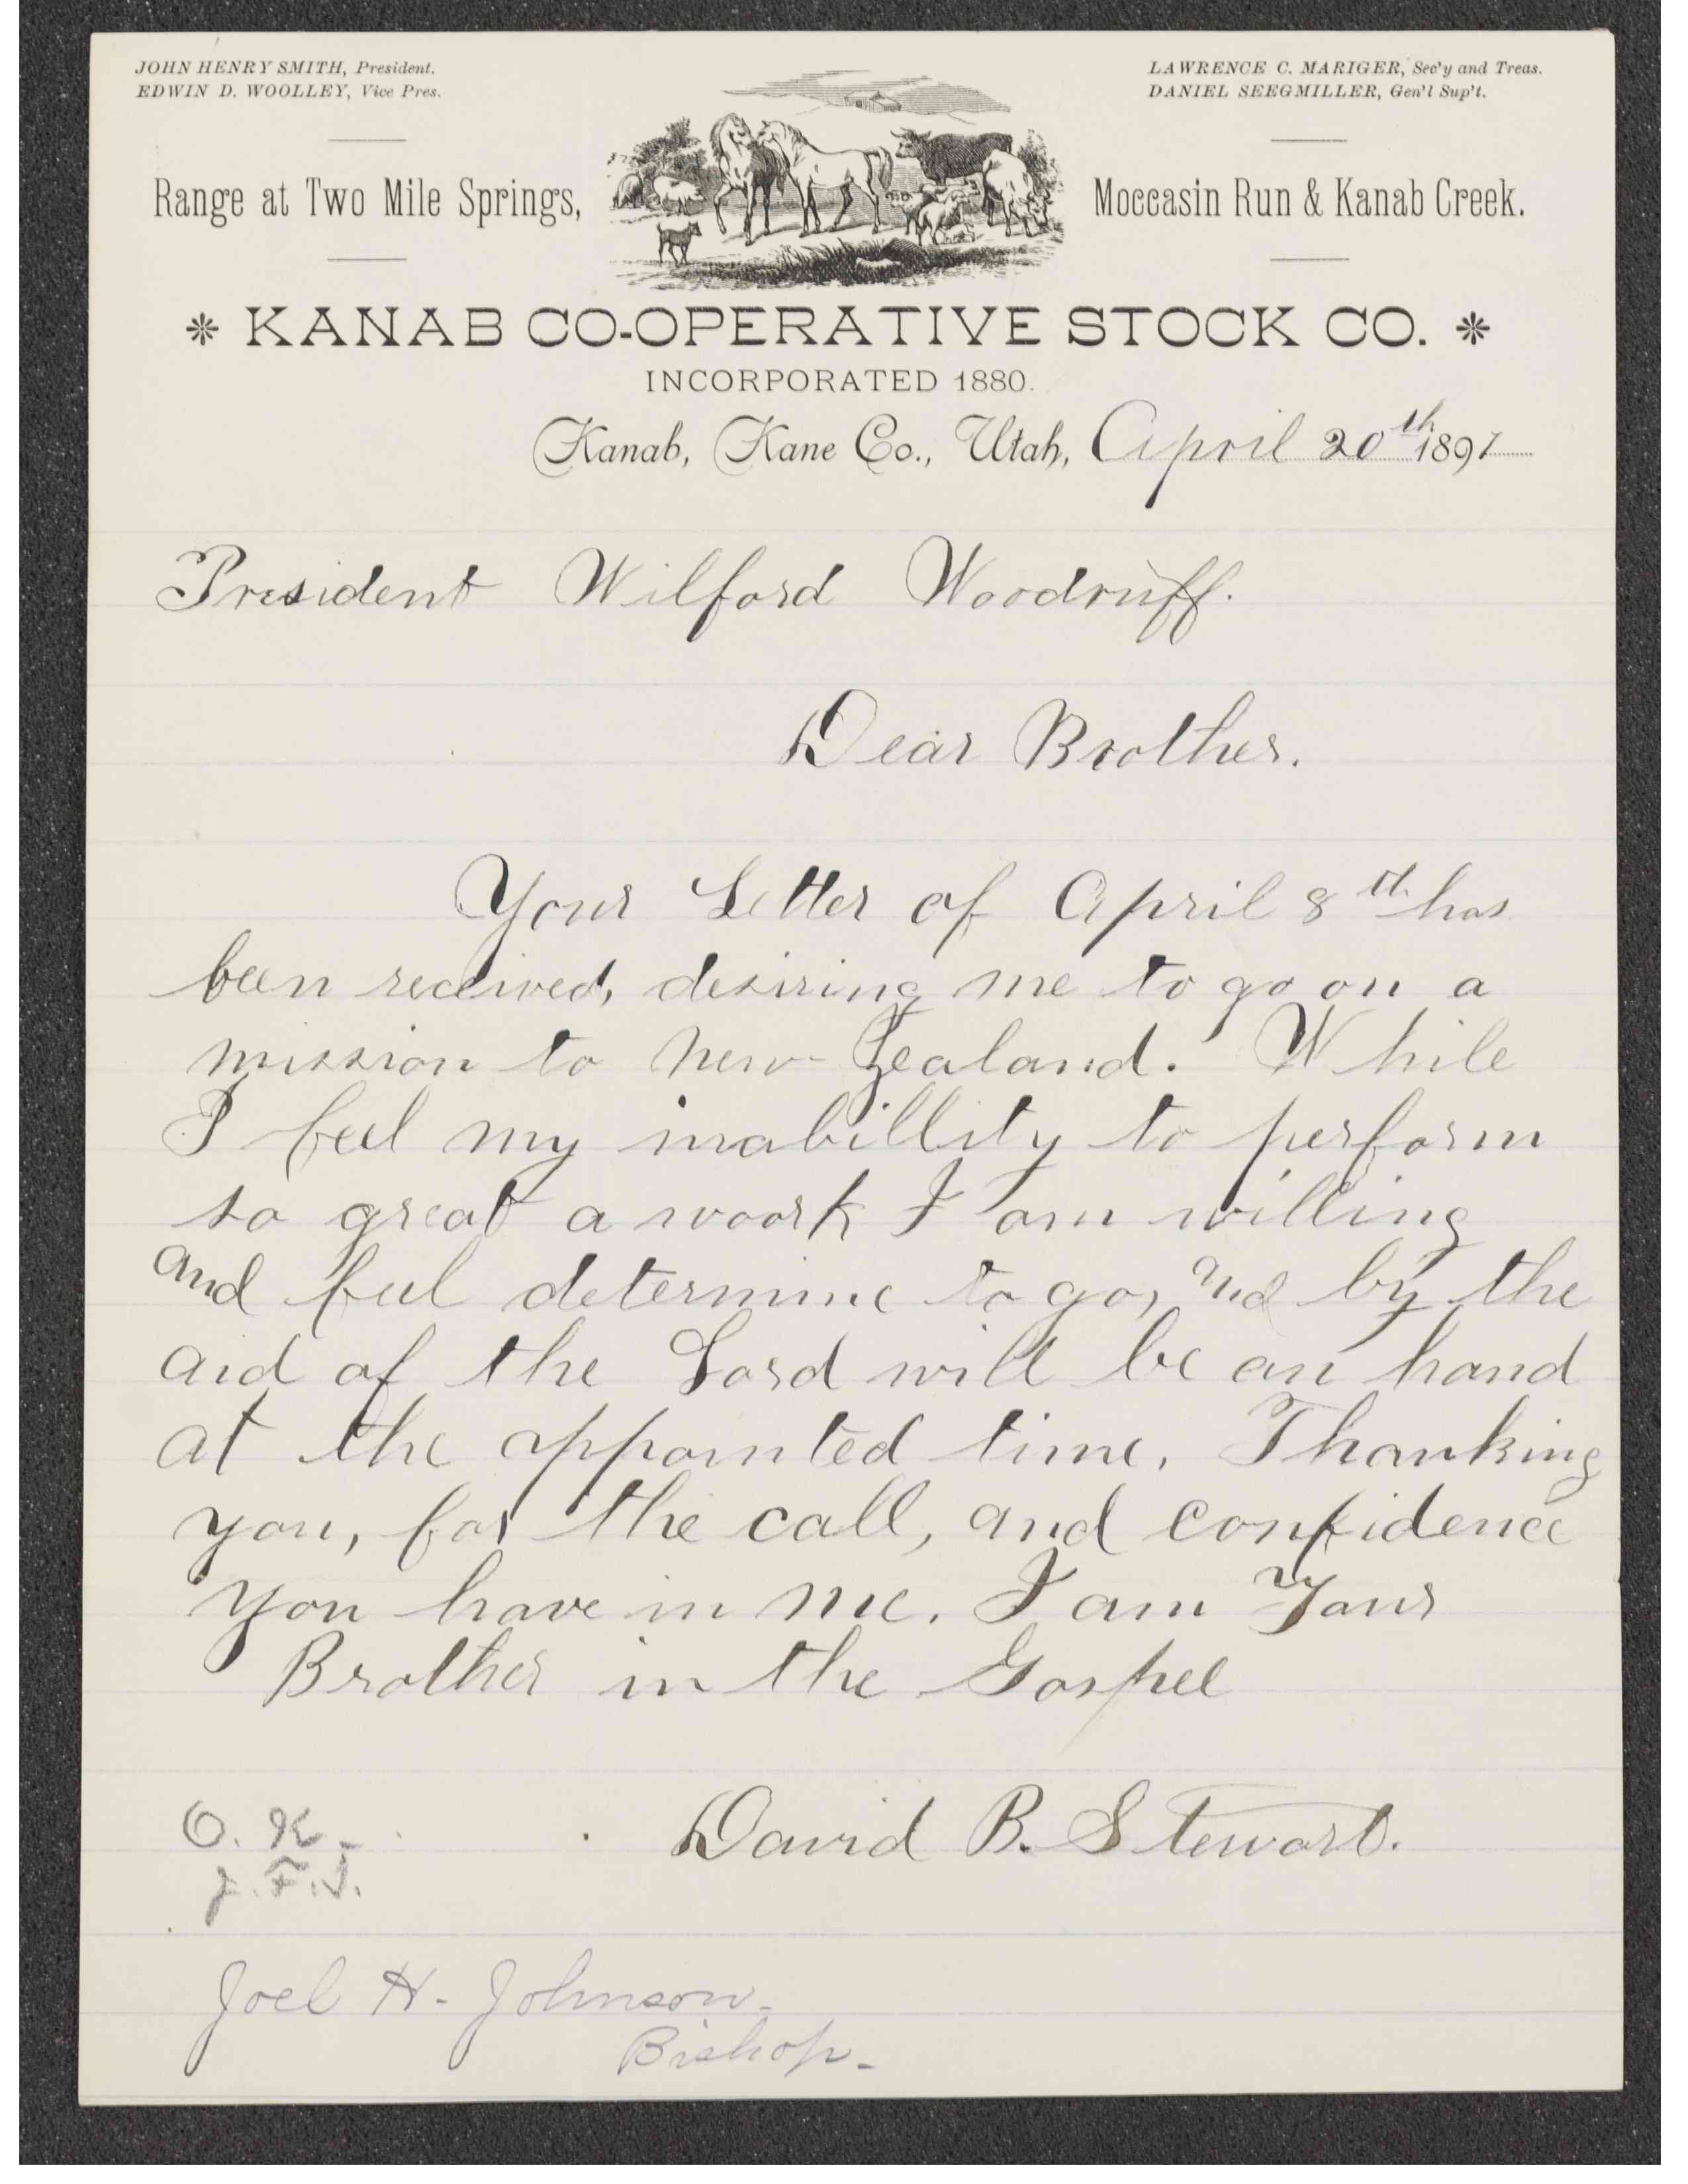 JOHN HENRY SMITH, President.
EDWIN D. WOOLLEY, Vice Pres.
LAWRENCE C. MARIGER, Sec'y and Treas.
DANIEL SEEGMILLER, Gen'l Sup't.
Range at Two Mile Springs,
Moccasin Run & Kanab Creek.
* KANAB CO-OPERATIVE STOCK CO. *
INCORPORATED 1880.
Kanab, Kane Co., Utah, April 20th 1897
President Wilford Woodruff.
Dear Brother.
Your Letter of April 8th has
been received, desiring me to go on a
mission to New-Zealand. While
I feel my inabillity to perform
so great a woork I am willing
and feel determine to go, and by the
aid of the Lord will be on hand
at the appointed time. Thanking
you, for the call, and confidence
you have in me. I am Your
Brother in the Gospel
David B. Stewart.
O. K.
J. F. S.
Joel H. Johnson.
Bishop-